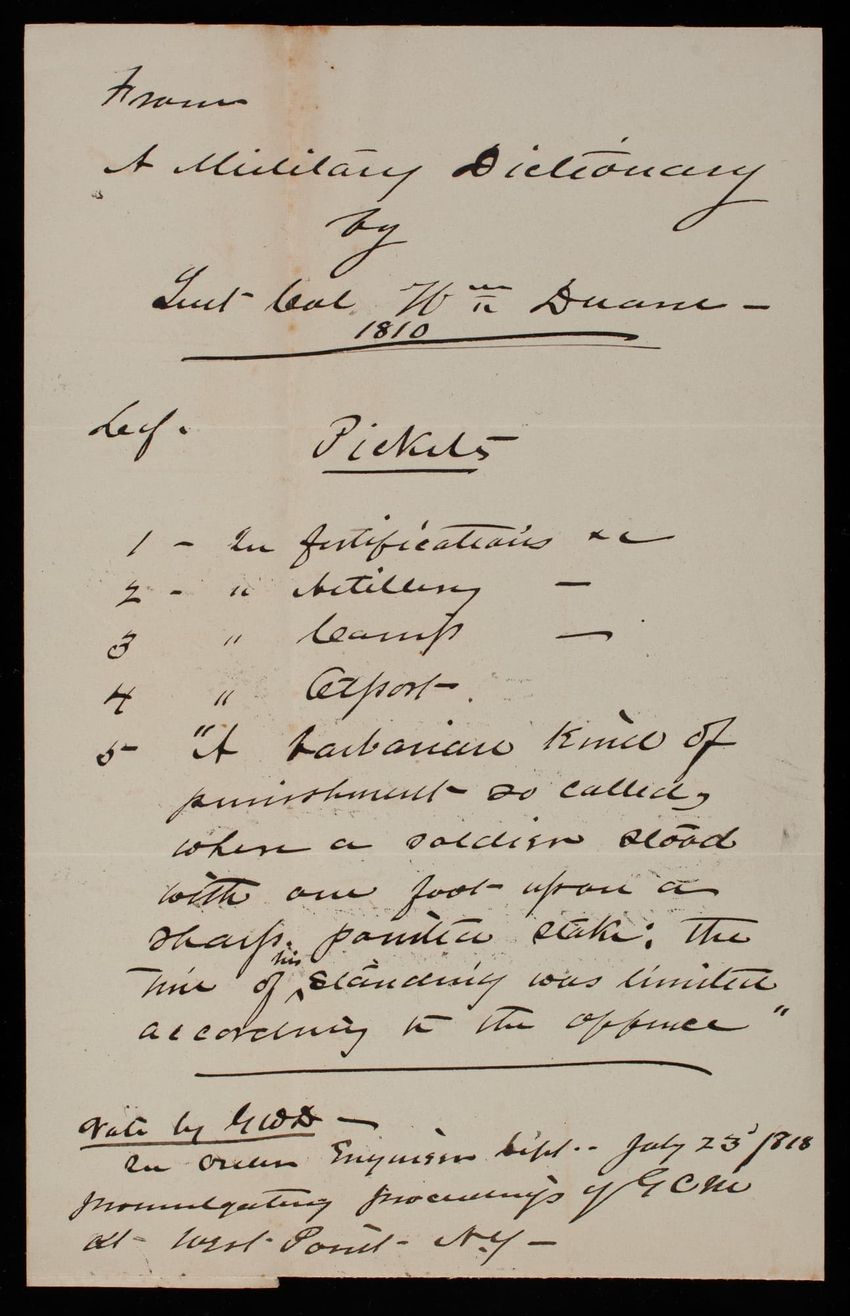 From
A Military Dictionary
by
Lieut Col Wm Duane —
1810
Def. Pickets
1 — In fortifications &c
2 — " Artillery —
3 " Camp —
4 " Outpost.
5 "A barbarian kind of
punishment so called,
when a soldier stood
with one foot upon a
sharp pointed stake: the
time of his standing was limited
according to the offence"
Note by GWD —
In order Engineer Dept.. July 23d 1818
promulgating proceedings of GCM
at West Point N.Y —